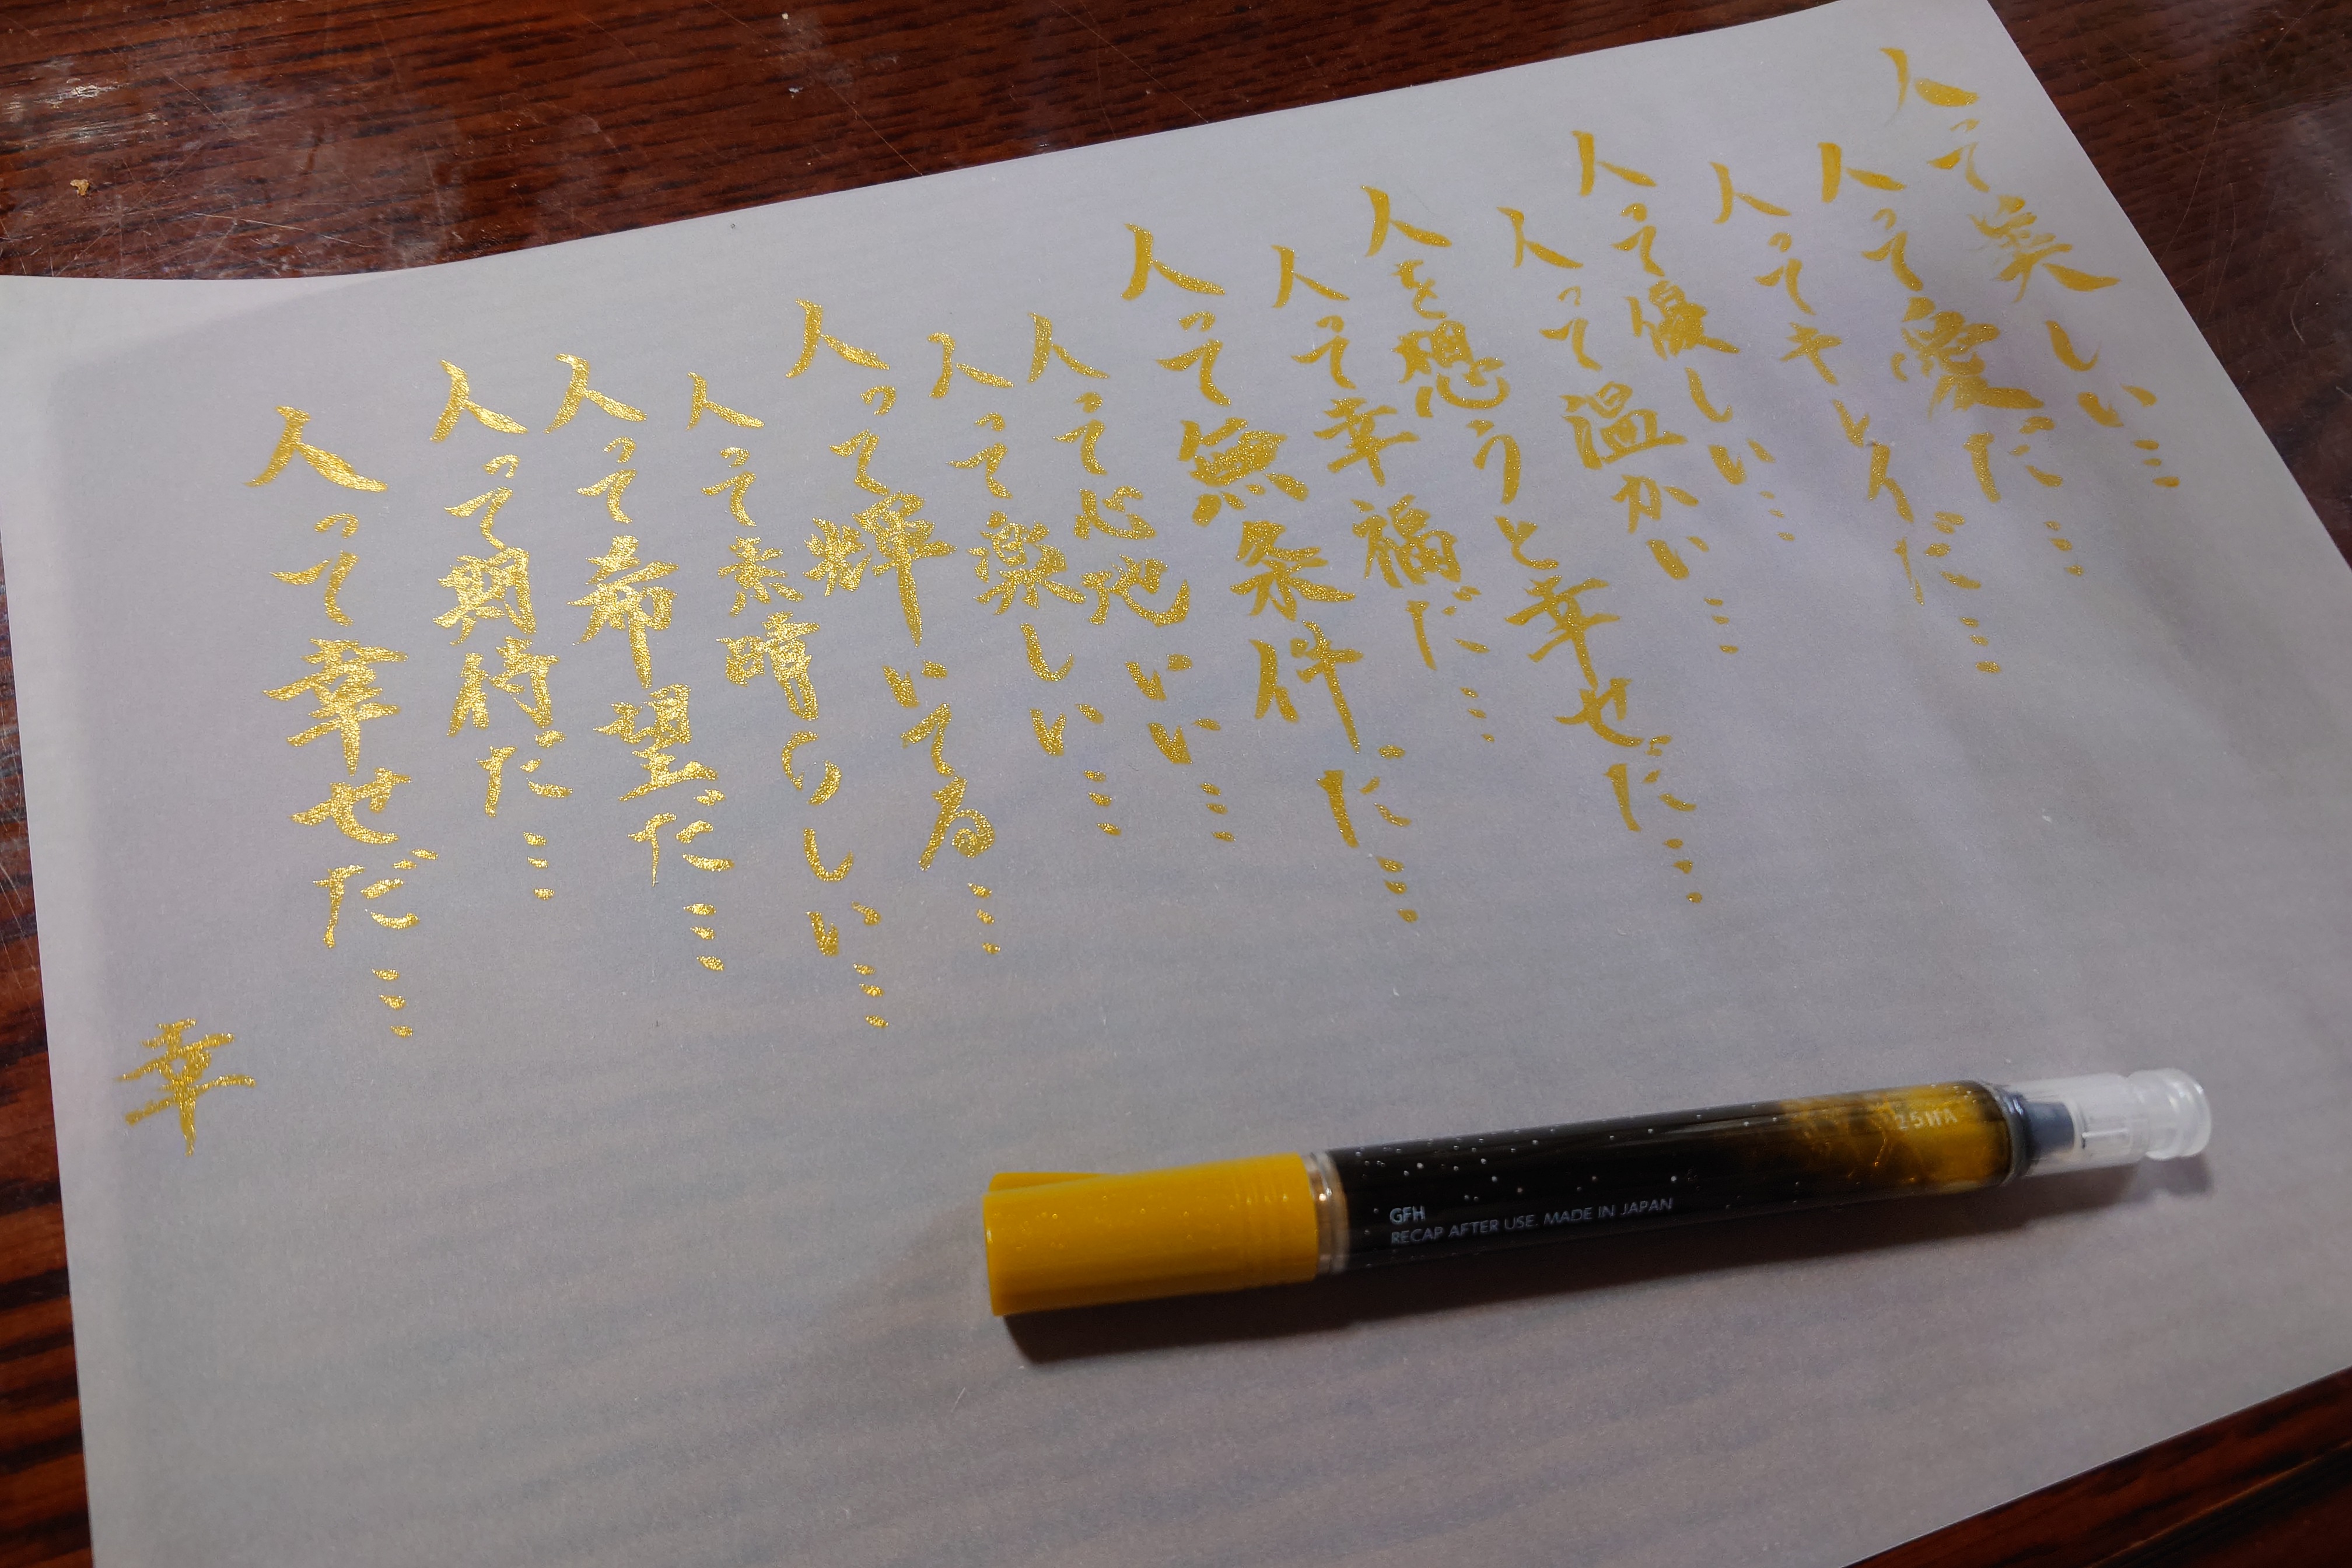 人って美しい…
人って愛だ…
人ってキレイだ…
人って優しい…
人って温かい…
人を想うと幸せだ…
人って幸福だ…
人って無条件だ…
人って心地いい…
人って楽しい…
人って輝いてる…
人って素晴らしい…
人って希望だ…
人って期待だ…
人って幸せだ…
幸
GFH
RECAP AFTER USE. MADE IN JAPAN